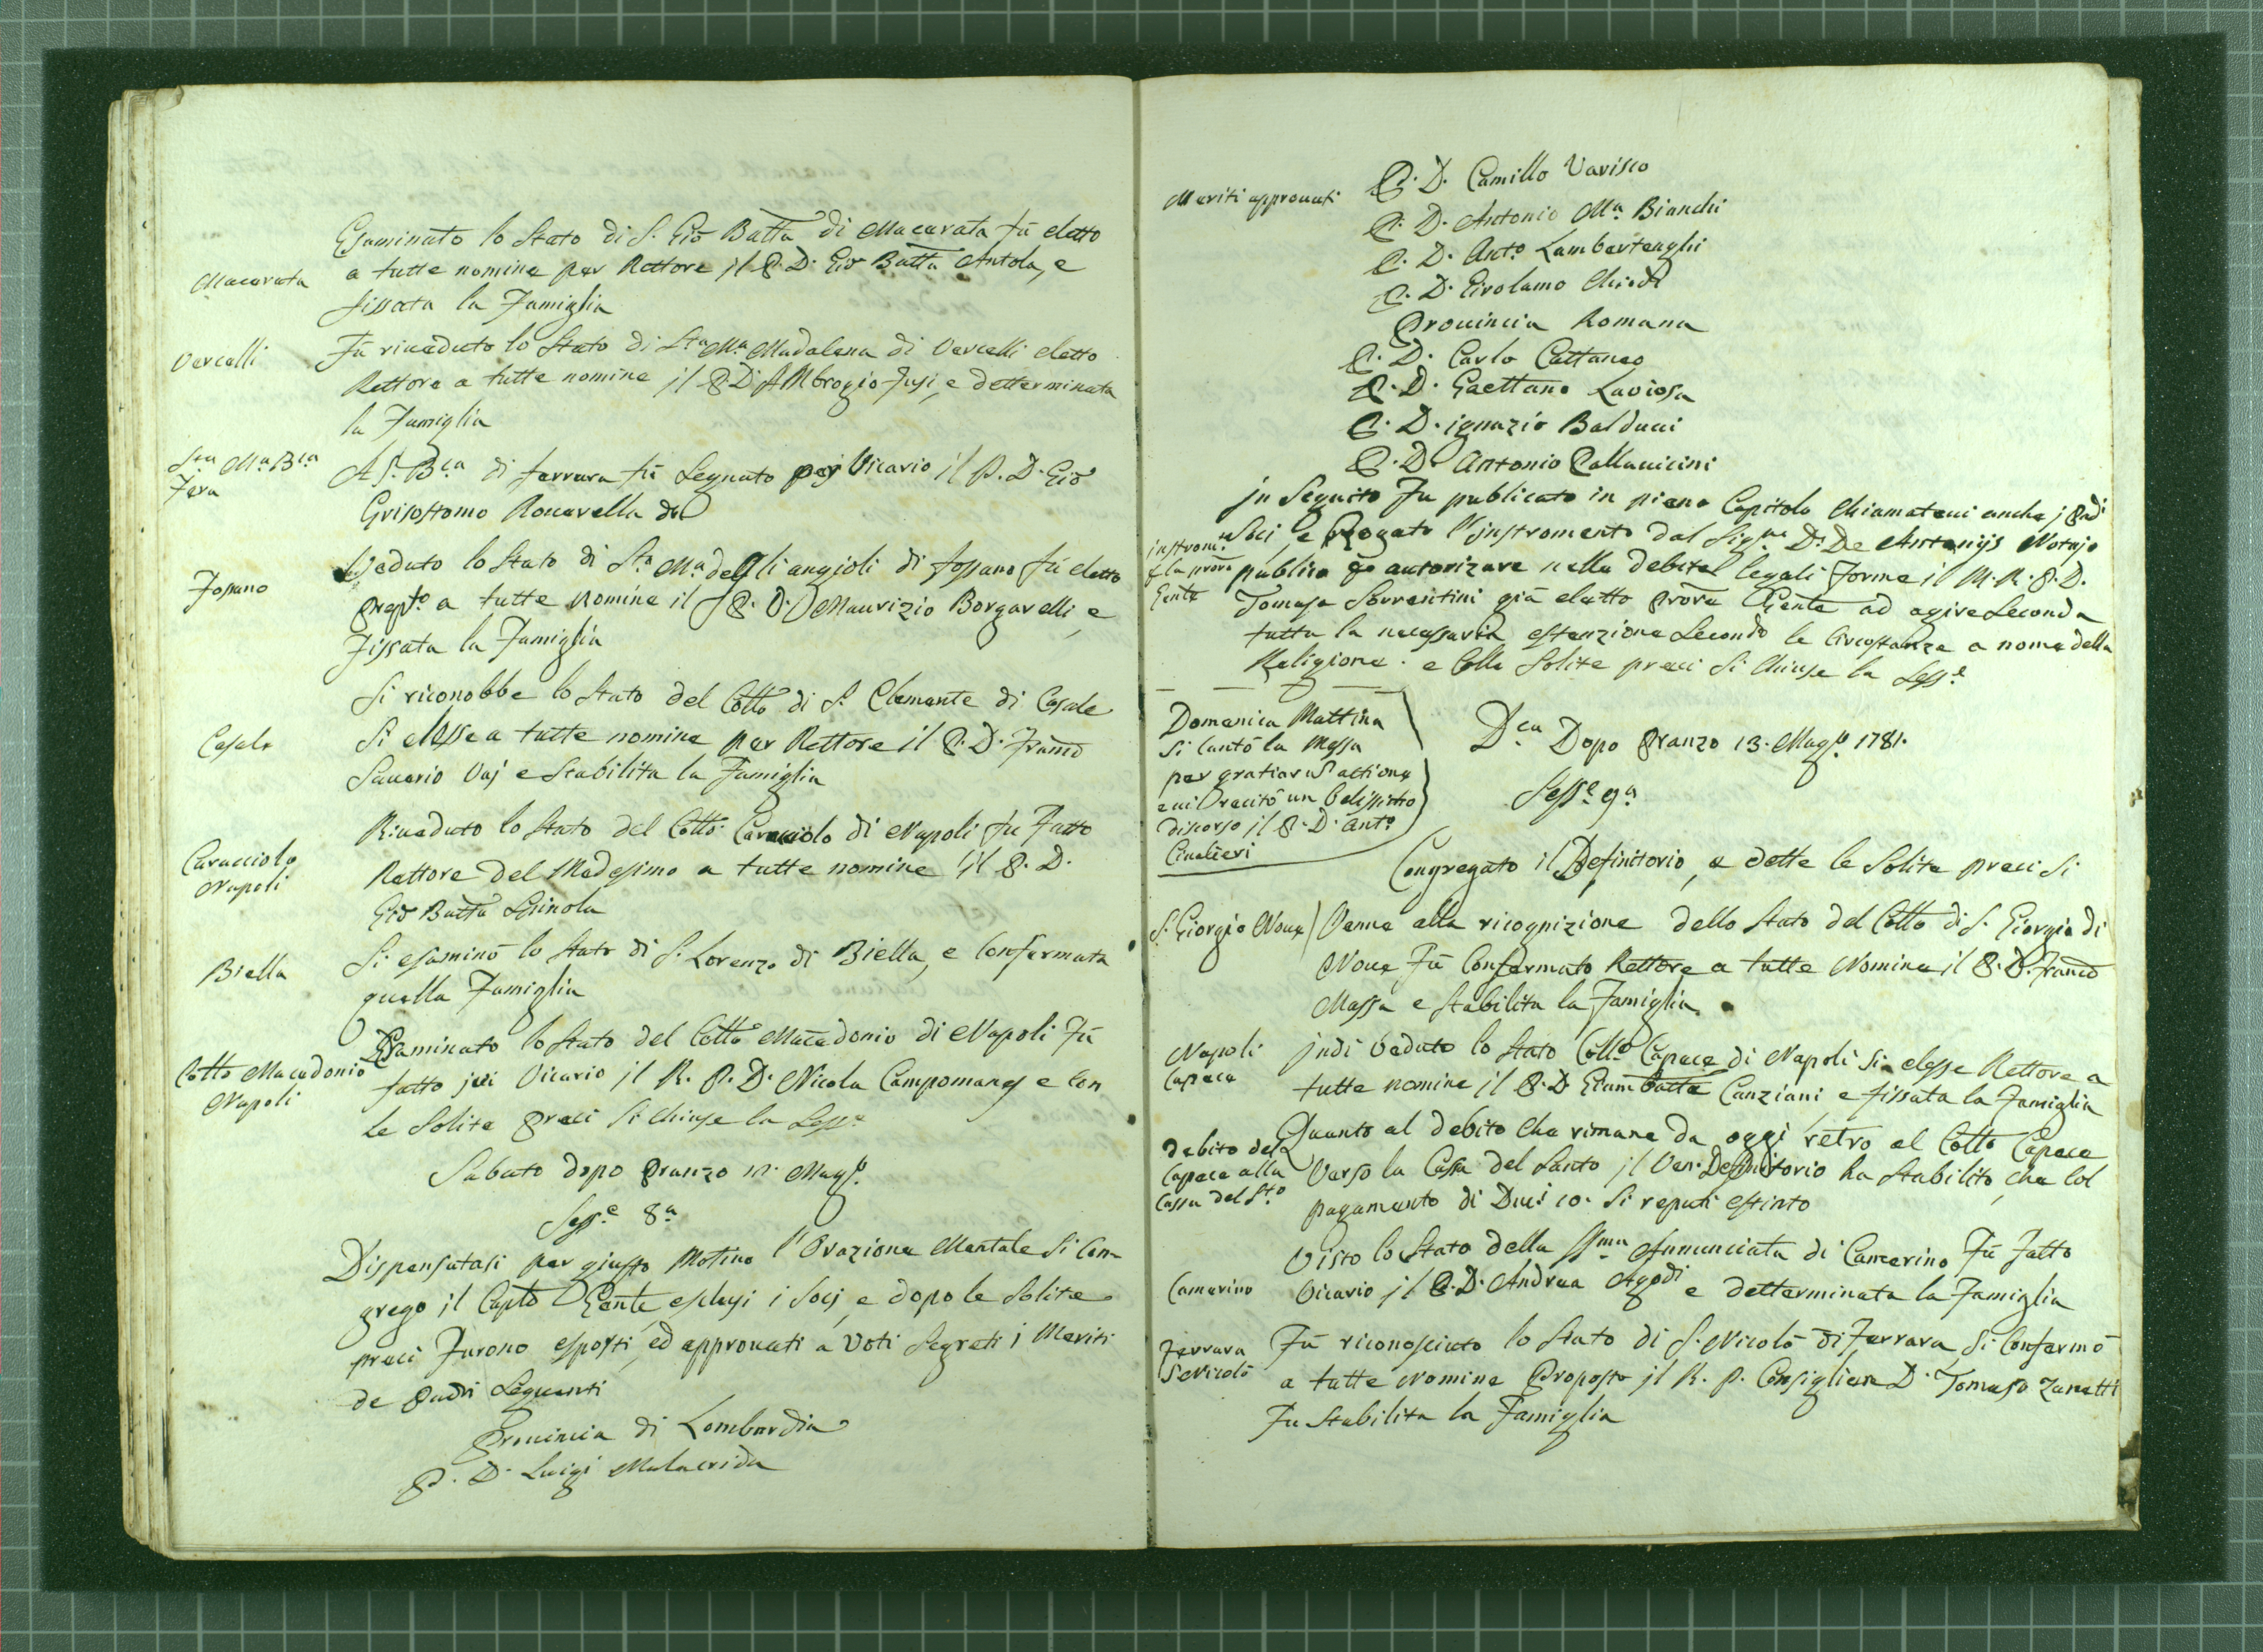 Esaminato lo Stato di S. Gio Batta di Macerata fù eletto
Macerata
a tutte nomine per Rettore il P. D. Gio Batta Antola, e
fissata la Famiglia
Vercelli
Fù riveduto lo Stato di Sta Ma Madalena di Vercelli eletto
Rettore a tutte nomine il P. D. Ambrogio Fusi, e detterminata
la Famiglia
Sta Ma Bca
Fera
A S. Bca di ferrara fù Segnato per Vicario il P. D. Gio
Grisostomo Roncarella
Fossano
Veduto lo Stato di Sta Ma degli angioli di fossano fù eletto
Prepto a tutte nomine il P. D. Maurizio Borgarelli, e
fissata la Famiglia
Si riconobbe lo Stato del Collo di S. Clemente di Casale
Casale
Si elesse a tutte nomine per Rettore il P. D. Franco
Saverio Vaj e Stabilita la Famiglia
Riveduto lo Stato del Collo Caracciolo di Napoli fu Fatto
Caracciolo
Napoli
Rettore del Medesimo a tutte nomine il P. D.
Gio Batta Spinola
Biella
Si esaminò lo Stato di S. Lorenzo di Biella, e Confermata
quella Famiglia
Esaminato lo Stato del Collo Macedonio di Napoli Fù
Collo Macedonio
Napoli
fatto ivi Vicario il R. P. D. Nicola Campomanes e Con
le Solite Preci Si Chiuse la Sesse
Sabato dopo Pranzo 12. Maggo
Sesse 8a
Dispensatasi per giusto Motivo l'Orazione Mentale Si Con-
gregò il Capto Gente esclusi i Socj, e dopo le Solite
preci Furono esposti, ed approvati a Voti Segreti i Meriti
de Padri Seguenti
Provincia di Lombardia
P. D. Luigi Malacrida
Meriti approvati
P. D. Camillo Varisco
P. D. Antonio Ma Bianchi
P. D. Anto Lambertenghi
P. D. Girolamo Chiodi
Provincia Romana
P. D. Carlo Cattaneo
P. D. Gaettano Laviosa
P. D. ignazio Balducci
P. D. Antonio Pallavicini
in Seguito Fu publicato in pieno Capitolo Chiamatevi anche i Padi
Socj, e Rogato l'instromento dal Sigre D. De Antonijs Notajo
instromto
p la procra
Gente
publico per autorizare nelle debite legali Forme il M. R. P. D.
Tomaso Sorrentini già eletto Procre Gente ad agire Seconda
tutta la necessaria estenzione Secondo le Circostanze a nome della
Religione. e Colle Solite preci Si Chiuse la Sesse
Domenica Mattina
Si Cantò la Messa
per gratiarum actione
e vi recitò un belissimo
discorso il P. D. Anto
Civalieri
Dca Dopo Pranzo 13. Maggo 1781.
Sesse 9a
Congregato il Definitorio, e dette le Solite preci Si
S. Giorgio Nove
Venne alla ricognizione dello Stato del Collo di S. Giorgio di
Nove Fù Confermato Rettore a tutte Nomine il P. D. Franco
Massa e Stabilita la Famiglia.
Napoli
Capece
indi Veduto lo Stato Collo Capece di Napoli Si elesse Rettore a
tutte nomine il P. D. Giambatta Canziani e fissata la Famiglia
debito del
Capece alla
Cassa del Sto
Quanto al debito Che rimane da oggi retro al Collo Capece
Verso la Cassa del Santo il Ven. Definitorio ha Stabilito, che Col
pagamento di Duci 10. Si reputi estinto
Visto lo Stato della SSma Annunciata di Camerino Fù Fatto
Camerino
Vicario il P. D. Andrea Agodi e detterminata la Famiglia
Ferrara
S Nicolò
Fù riconosciuto lo Stato di S. Nicolò di Ferrara Si Confermò
a tutte Nomine Proposto il R. P. Consigliere D. Tomaso Zanetti
Fu Stabilita la Famiglia